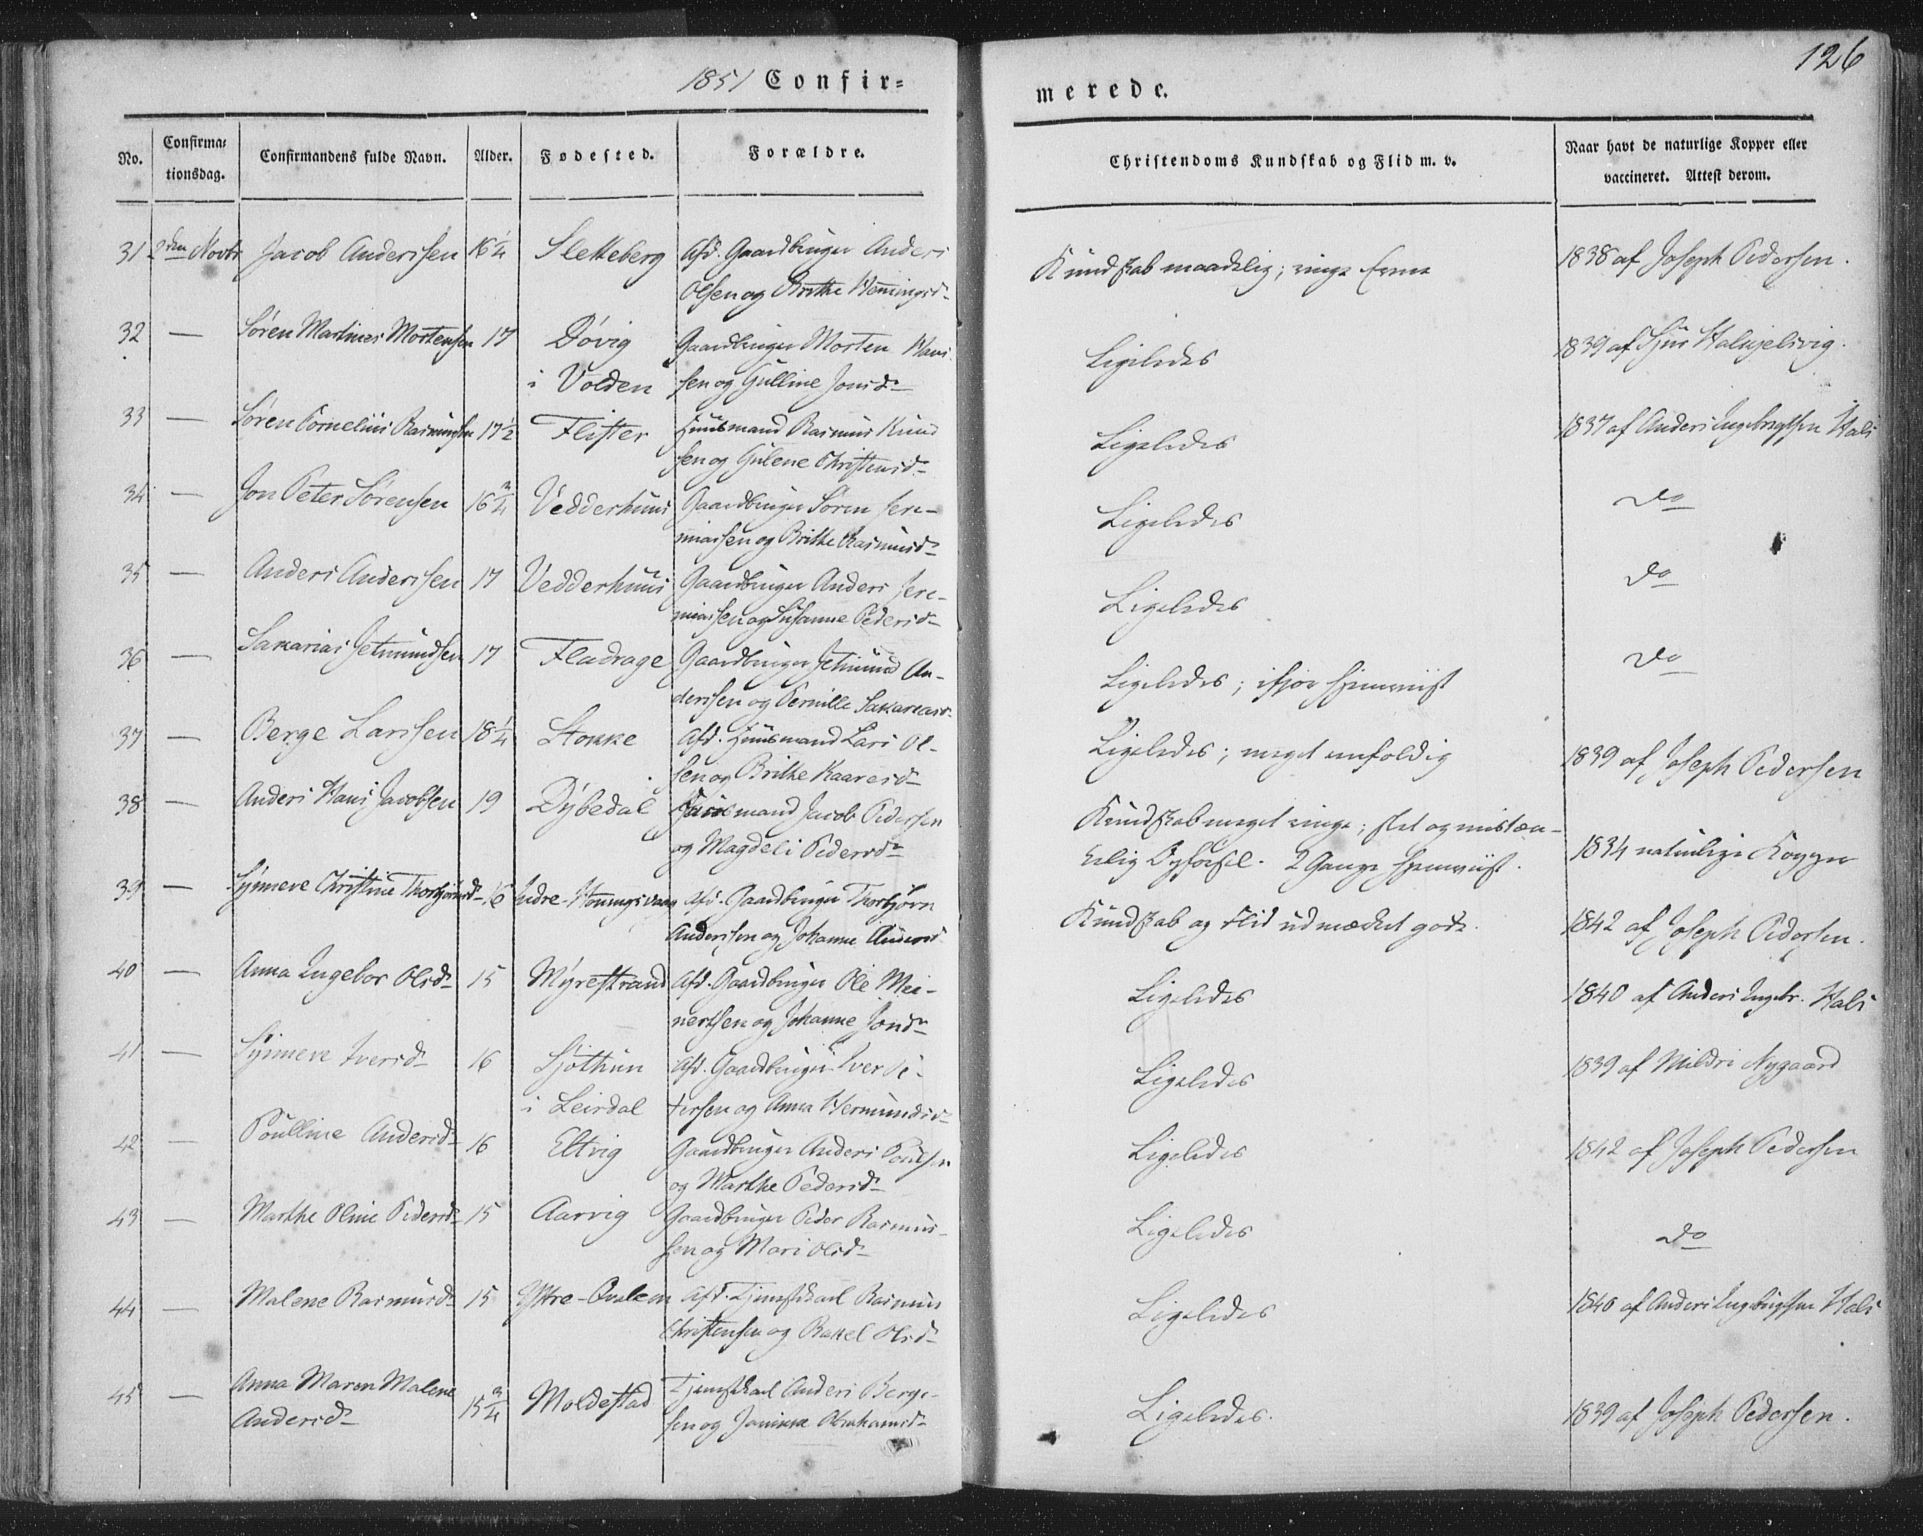 126
1851 Confir=
merede.
No. Confirma= tionsdag. Confirmandens fulde Navn. Alder. Fødested. Forældre. Christendoms Kundskab og Flid m. v. Naar havt de naturlige Kopper eller vaccineret. Attest derom.
31 2den Novbr Jacob Andersen 16¼ Sletteberg Afd. Gaardbruger Anders Kundskab maadelig; ringe Evne 1838 af Joseph Pedersen.
Olsen og Brithe Henningsd.
32 — Søren Martines Mortensen 17 Døvig Gaardbruger Morten Hans Ligeledes 1839 af
i Volden sen og Gulline Jonsd.
33 — Søren Cornelius Rasmussen 17½ Flister Huusmand Rasmus Knud Ligeledes 1837 af Anders Ingebrigtsen Hals
sen og Gulene Christensd.
34 — Jon Peter Sørensen 16¾ Vedderhuus Gaardbruger Søren Jere- Ligeledes do
miassen og Brithe Rasmusd.
35 — Anders Andersen 17 Vedderhuus Gaardbruger Anders Jere- Ligeledes do
miassen og Susanne Pedersd.
36 — Sakarias Jetmundsen 17 Fladrage Gaardbruger Jetmund An- Ligeledes; ifjor hjemviist do
dersen og Pernille Sakariasd.
37 — Berge Larssen 18¼ Stokke Afd. Huusmand Lars Ol- Ligeledes; meget enfoldig 1839 af Joseph Pedersen
sen og Brithe Kaaresd.
38 — Anders Hans Jacobsen 19 Dybedal Huusmand Jacob Pedersen Kundskab meget ringe; slet og mistæn- 1834 naturlige Kopper
og Magdeli Pedersd. kelig Opførsel. 2 Gange hjemviist.
39 — Synneve Christine Thorbjørnsd. 16 Indre-Honningsvaag Afd. Gaardbruger Thorbjørn Kundskab og Flid udmærket godt. 1842 af Joseph Pedersen.
Andersen og Johanne Andersd.
40 — Anna Ingebor Olsd. 15 Myrestrand Afd. Gaardbruger Ole Mei- Ligeledes 1840 af Anders Ingebr. Hals
nertsen og Johanne Jonsd.
41 — Synneve Iversd. 16 Sjøthun Afd. Gaardbruger Iver Pe- Ligeledes 1839 af Mildri Nygaard
i Leirdal tersen og Anna Hermundsd.
42 — Poulline Andersd. 16 Eltvig Gaardbruger Anders Poulsen Ligeledes 1842 af Joseph Pedersen
og Marthe Pedersd.
43 — Marthe Oline Pedersd. 15 Aarvig Gaardbruger Peder Rasmus- Ligeledes do
sen og Mari Olsd.
44 — Malene Rasmusd. 15 Yttre-Qvalem Afd. Tjenestkarl Rasmus Ligeledes 1840 af Anders Ingebrigtsen Hals
Christensen og Rakel Olsd.
45 — Anna Maren Malene 15¾ Moldestad Tjenestkarl Anders Berge- Ligeledes. 1839 af Joseph Pedersen.
Andersd. sen og Abrahamsd.